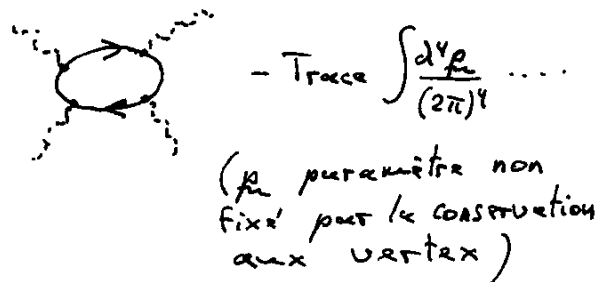 - Trace ∫ d⁴p_μ / (2π)⁴ ....
(p_μ paramètre non
fixé par la conservation
aux vertex)